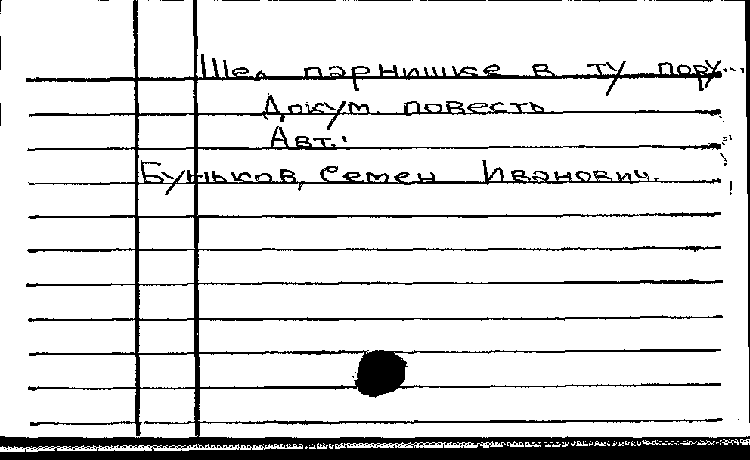 Шел парнишке в ту пору...
Докум. повесть
Авт.:
Буньков, Семен Иванович.